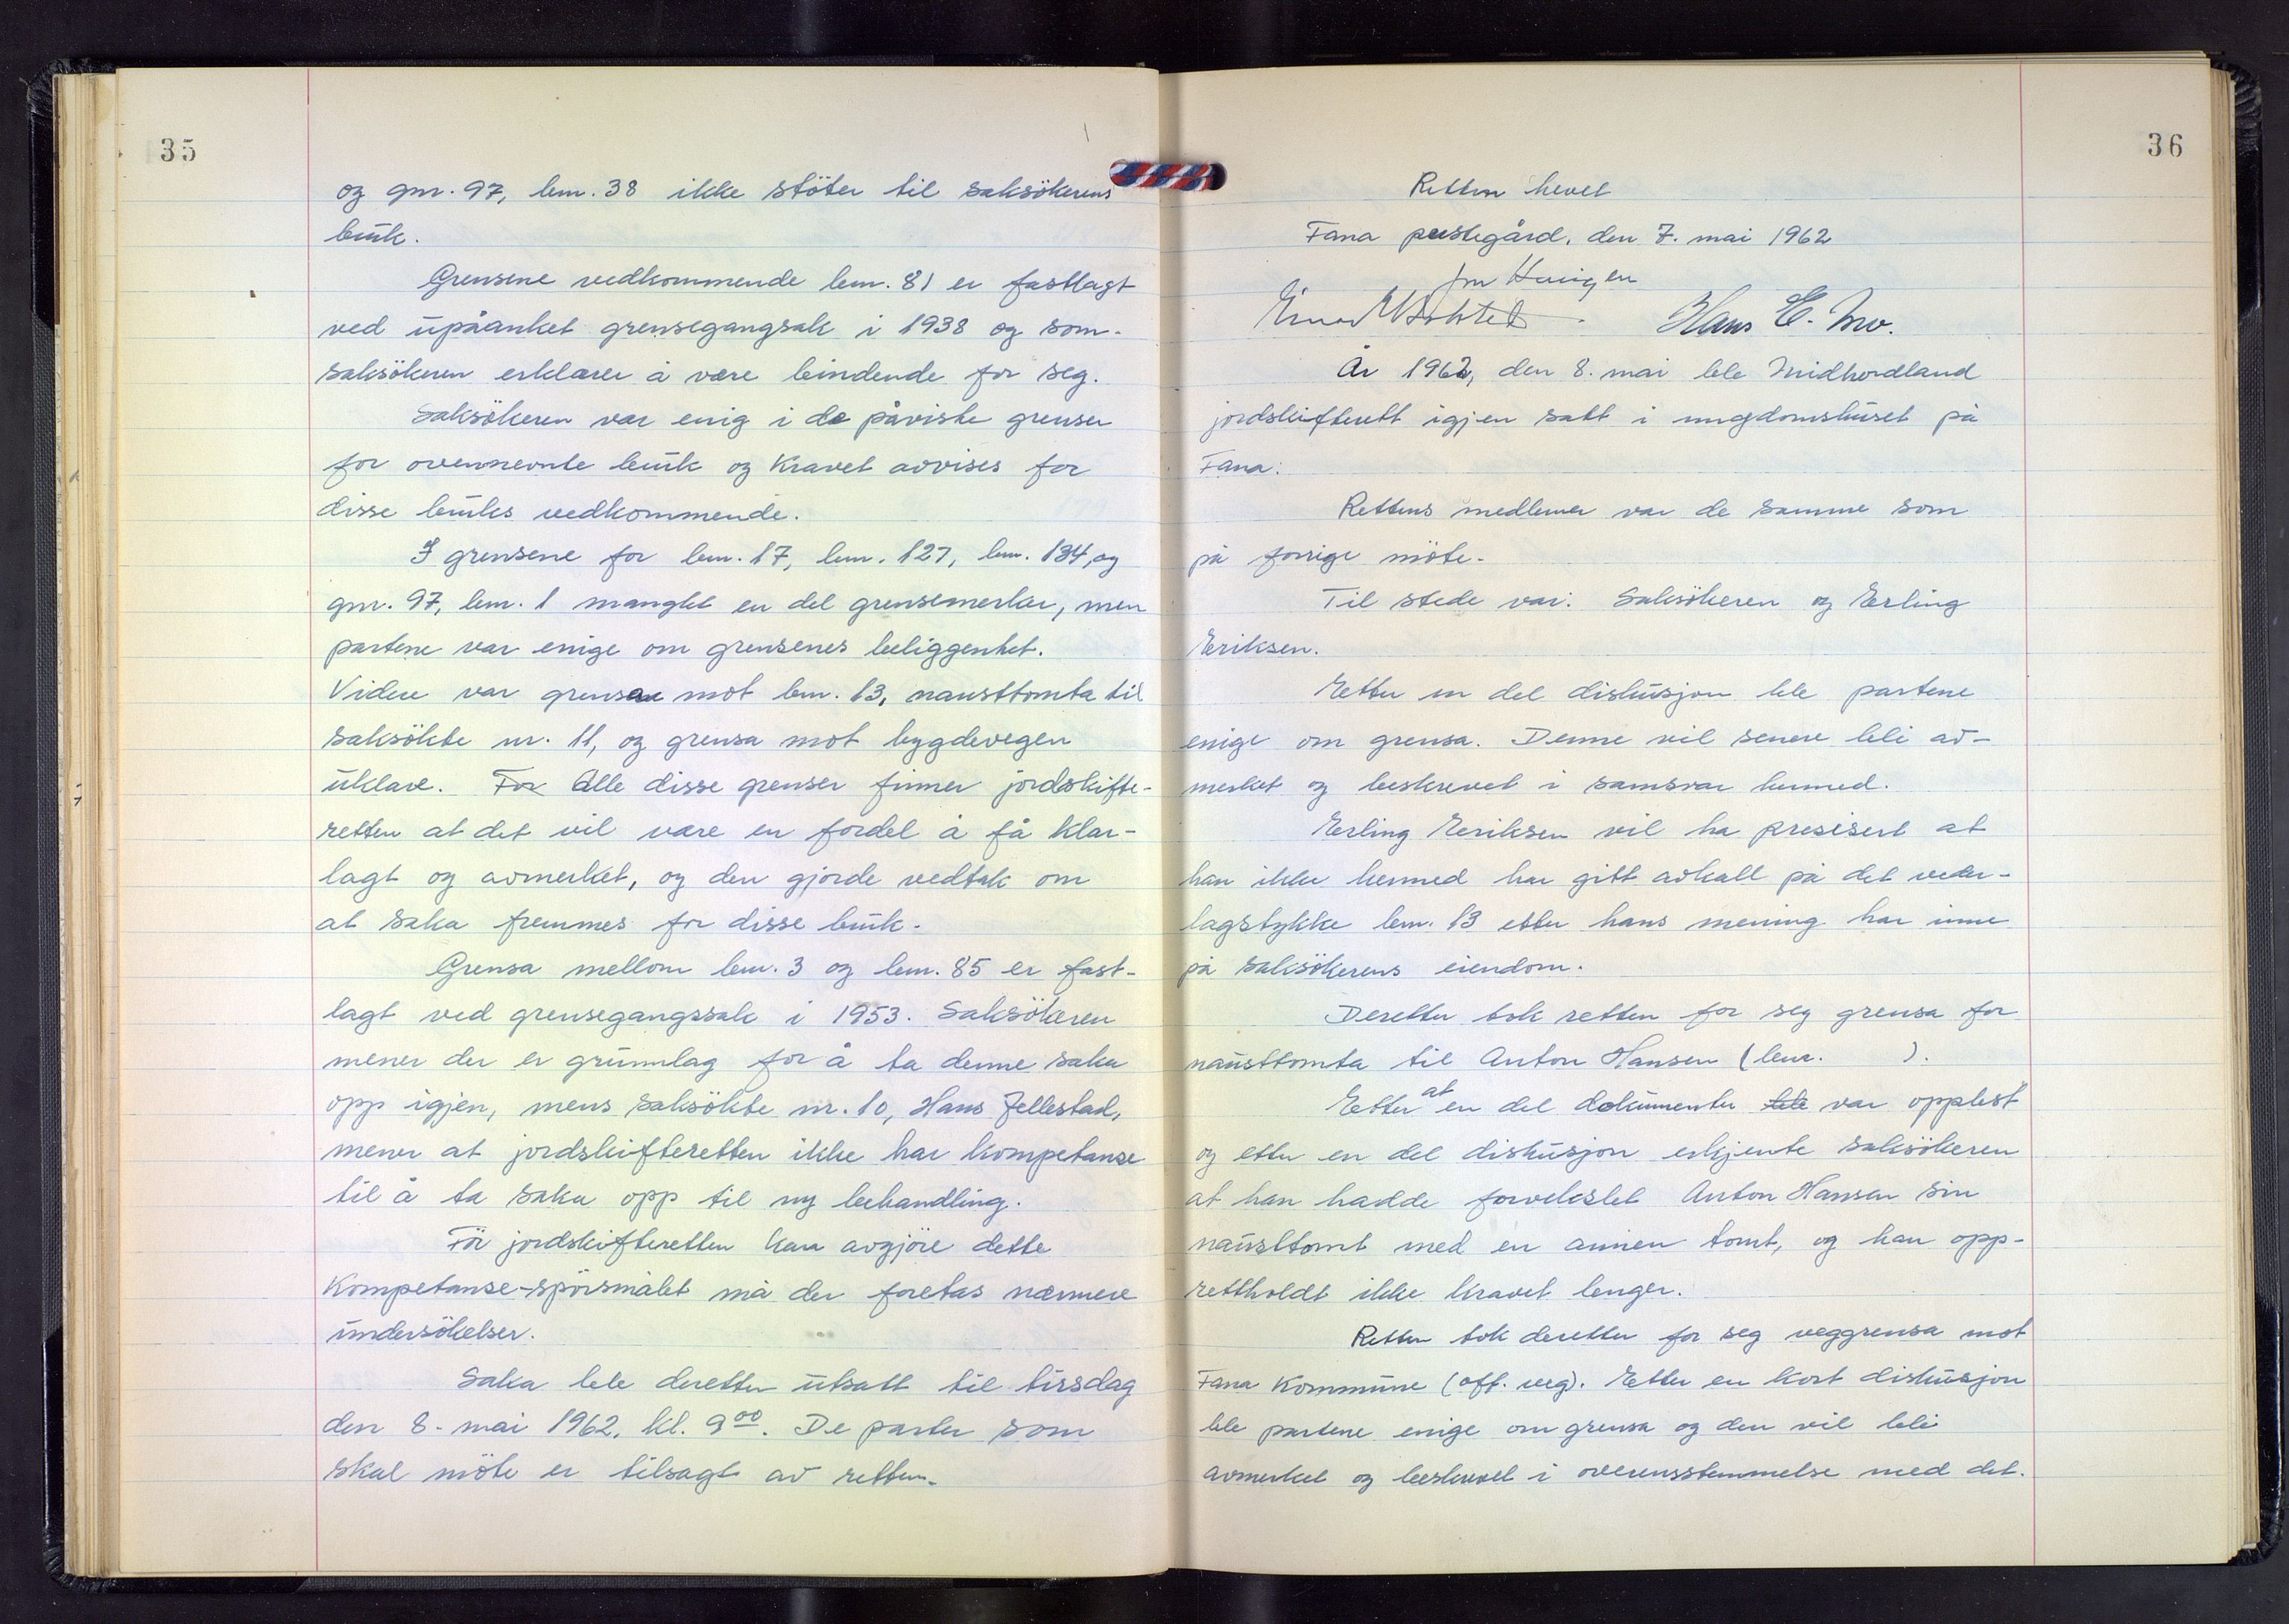 35
og gnr. 97, bnr. 38 ikke støter til saksökerens
bruk.
Grensene vedkommende bnr. 81 er fastlagt
ved upåanket grensegangsak i 1938 og som
saksökeren erklærer å være bindende for seg.
Saksökeren var enig i de påviste grenser
for ovennevnte bruk og kravet avvises for
disse bruks vedkommende.
I grensene for bnr. 17, bnr. 127, bnr. 134, og
gnr. 97, bnr. 1 manglet en del grensemerker, men
partene var enige om grensenes beliggenhet.
Videre var grensene mot bnr. 13, nausttomta til
saksökte nr. 11, og grensa mot bygdevegen
uklare. For Alle disse grenser finner jordskifte-
retten at det vil være en fordel å få klar-
lagt og avmerket, og den gjorde vedtak om
at saka fremmes for disse bruk.
Grensa mellom bnr. 3 og bnr. 85 er fast-
lagt ved grensegangssak i 1953. Saksökeren
mener der er grunnlag for å ta denne saka
opp igjen, mens saksökte nr. 10, Hans Fellestad,
mener at jordskifteretten ikke har kompetanse
til å ta saka opp til ny behandling.
För jordskifteretten kan avgjöre dette
kompetanse-spörsmålet må der foretas nærmere
undersökelser.
Saka ble deretter utsatt til tirsdag
den 8. mai 1962, kl. 9⁰⁰. De parter som
skal möte er tilsagt av retten.
36
Retten hevet
Fana prestegård, den 7. mai 1962
Hans E. Mo.
År 1962, den 8. mai ble Midhordland
jordskifterett igjen satt i ungdomshuset på
Fana:
Rettens medlemer var de samme som
på forrige möte.
Til stede var: Saksökeren og Erling
Eriksen.
Etter en del diskusjon ble partene
enige om grensa. Denne vil senere bli av-
merket og beskrevet i samsvar hermed.
Erling Eriksen vil ha presisert at
han ikke hermed har gitt avkall på det veder-
lagstykke bnr. 13 etter hans mening har inne
på saksökerens eiendom.
Deretter tok retten for seg grensa for
nausttomta til Anton Hansen (bnr. ).
Etter at en del dokumenter ble var opplest
og etter en del diskusjon erkjente saksökeren
at han hadde forvekslet Anton Hansen sin
nausttomt med en annen tomt, og han opp-
rettholdt ikke kravet lenger.
Retten tok deretter for seg veggrensa mot
Fana kommune (off. veg). Etter en kort diskusjon
ble partene enige om grensa og den vil bli
avmerket og beskrevet i overensstemmelse med det.